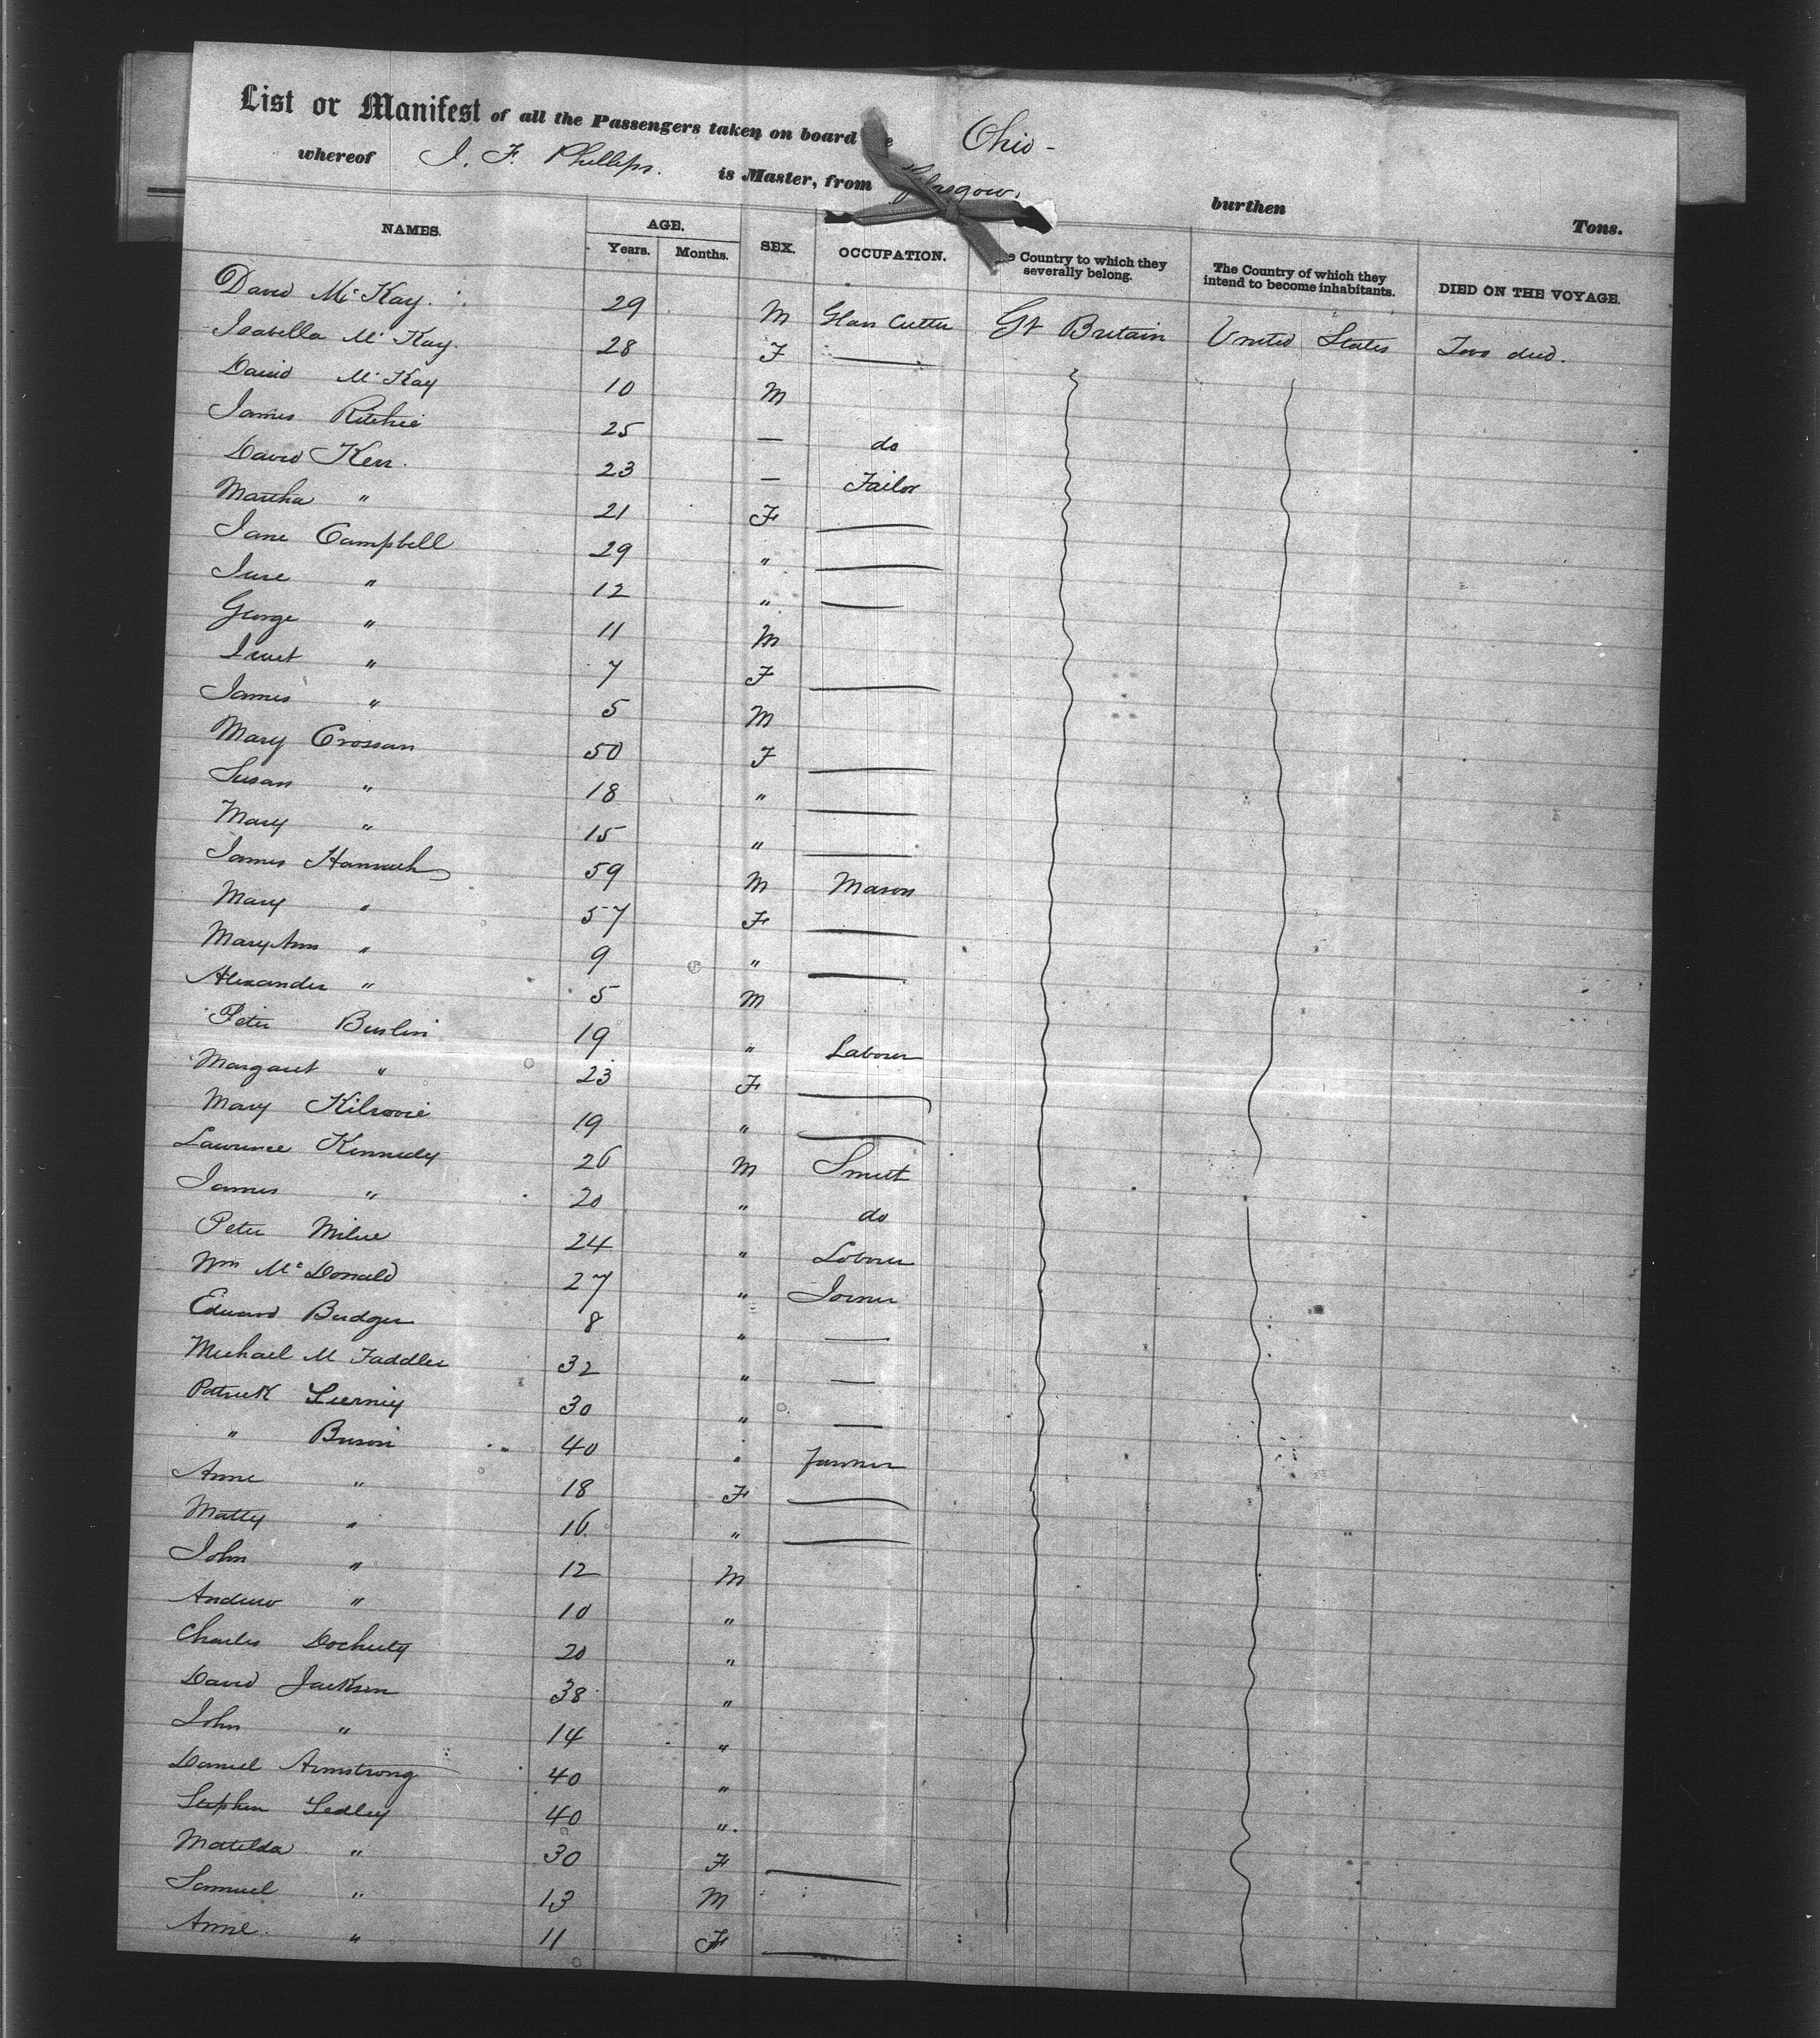 List or Manifest of all the Passengers taken on board Ohio -
whereof J. F. Phillips. is Master, from Glasgow.
burthen Tons.
NAMES. AGE. Years. Months. SEX. OCCUPATION. Country to which they severally belong. The Country of which they intend to become inhabitants. DIED ON THE VOYAGE.
David McKay. 29 M Glass Cutter Gt Britain United States Two died.
Isabella McKay. 28 F
David McKay 10 M
James Ritchie 25 — do
David Kerr. 23 — Tailor
Martha " 21 F
Jane Campbell 29 "
Jane " 12 "
George " 11 M
Janet " 7 F
James " 5 M
Mary Crossan 50 F
Susan " 18 "
Mary " 15 "
James Hannah 59 M Mason
Mary " 57 F
Mary Ann " 9 "
Alexander " 5 M
Peter 19 " Labourer
Margaret " 23 F
Mary 19 "
Lawrence Kennedy 26 M
James " 20 " do
Peter Milne 24 " Labourer
Wm McDonald 27 " Joiner
Edward Badger 8 " —
Michael M Faddler 32 " —
Patrick 30 " —
" 40 " Farmer
Anne " 18 F
Matty " 16 "
John " 12 M
Andrew " 10 "
Charles Docherty 20 "
David Jackson 38 "
John " 14 "
Daniel Armstrong 40 "
Stephen Sedley 40 "
Matilda " 30 F
Samuel " 13 M
Anne " 11 F